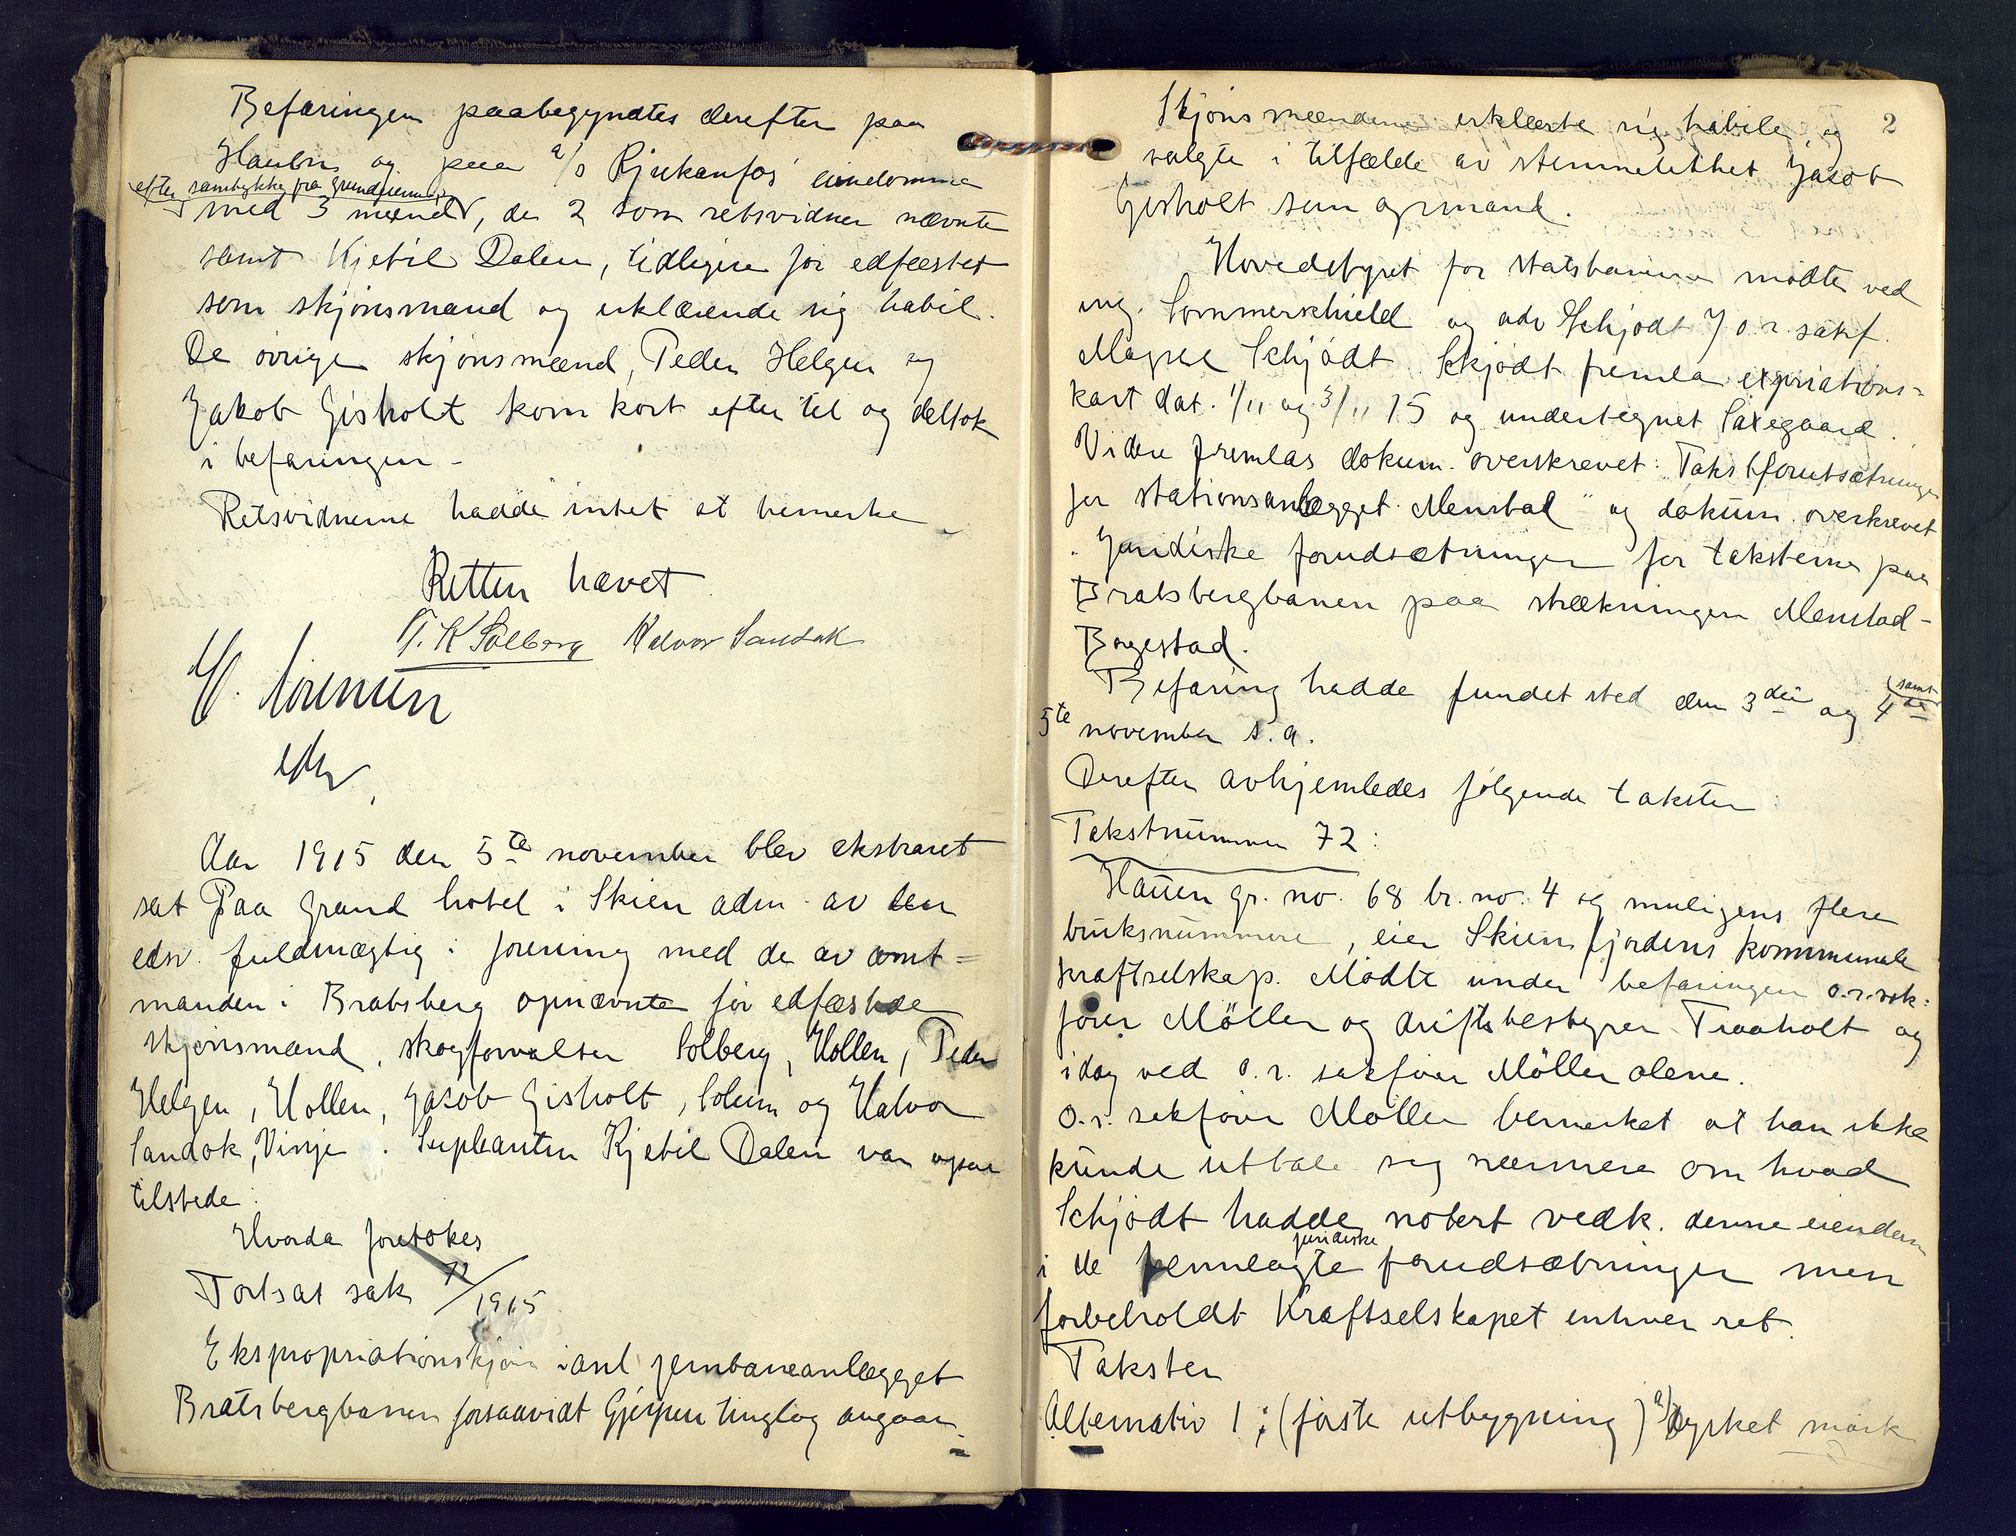 Befaringen paabegyndtes derefter paa
Hauen og paa a/s Rjukanfos' eiendomme
efter samtykke fra grundeierne
med 3 mænd, de 2 som retsvidner nævnte
samt Kjetil Dalen, tidligere før edfæstet
som skjønsmand og erklærende sig habil.
De øvrige skjønsmænd, Peder Helgen og
Jakob Gisholt kom kort efter til og deltok
i befaringen -
Retsvidnerne hadde intet at bemerke
Retten hævet
T. K Solberg Halvor Sandok
H. Sørensen
edsv.
Aar 1915 den 5te november blev ekstraret
sat Paa Grand hotel i Skien adm. av den
edsv. fuldmægtig i forening med de av amt=
manden i Bratsberg opnævnte før edfæstede
skjønsmænd, skogforvalter Solberg, Hollen, Peder
Helgen, Hollen, Jakob Gisholt, Solum og Halvor
Sandok, Vinje. Supleanten Kjetil Dalen var ogsaa
tilstede.
Hvorda foretokes
Fortsat sak 72/1915
Ekspropriationskjøn i anl jernbaneanlægget
Bratsbergbanen forsaavidt Gjerpen tinglag angaar.
2
Skjønsmændene erklærte sig habile og
valgte i tilfælde av stemmelikhet Jakob
Gisholt som opmand.
Hovedstyret for statsbanerne mødte ved
ing. Sommerschield og adv Schjødt f o.r.sakf.
Magne Schjødt. Schjødt fremla expriations-
kart dat. 1/11 og 3/11 15 og undertegnet Saxegaard.
Videre fremlas dokum. overskrevet: Takstforutsætninger
for stationsanlægget Menstad" og dokum overskrevet
"Juridiske forudsætninger for taksterne paa
Bratsbergbanen paa strækningen Menstad-
Borgestad.
Befaring hadde fundet sted den 3die og 4de samt
5te november s.a.
Derefter avhjemledes følgende takster
Takstnummer 72:
Hauen gr. no. 68 br. no. 4 og muligens flere
bruksnummere, eier Skiensfjordens kommunale
kraftselskap. Mødte under befaringen o.r.sak-
fører Møller og driftsbestyrer Traaholt og
idag ved o.r. sakfører Møller alene.
O.r. sakfører Møller bemerket at han ikke
kunde uttale sig nærmere om hvad
Schjødt hadde notert vedk. denne eiendom
i de fremlagte juridiske forudsætninger men
forbeholdt Kraftselskapet enhver ret.
Takster
Alternativ 1: (første utbygning) a/ dyrket mark